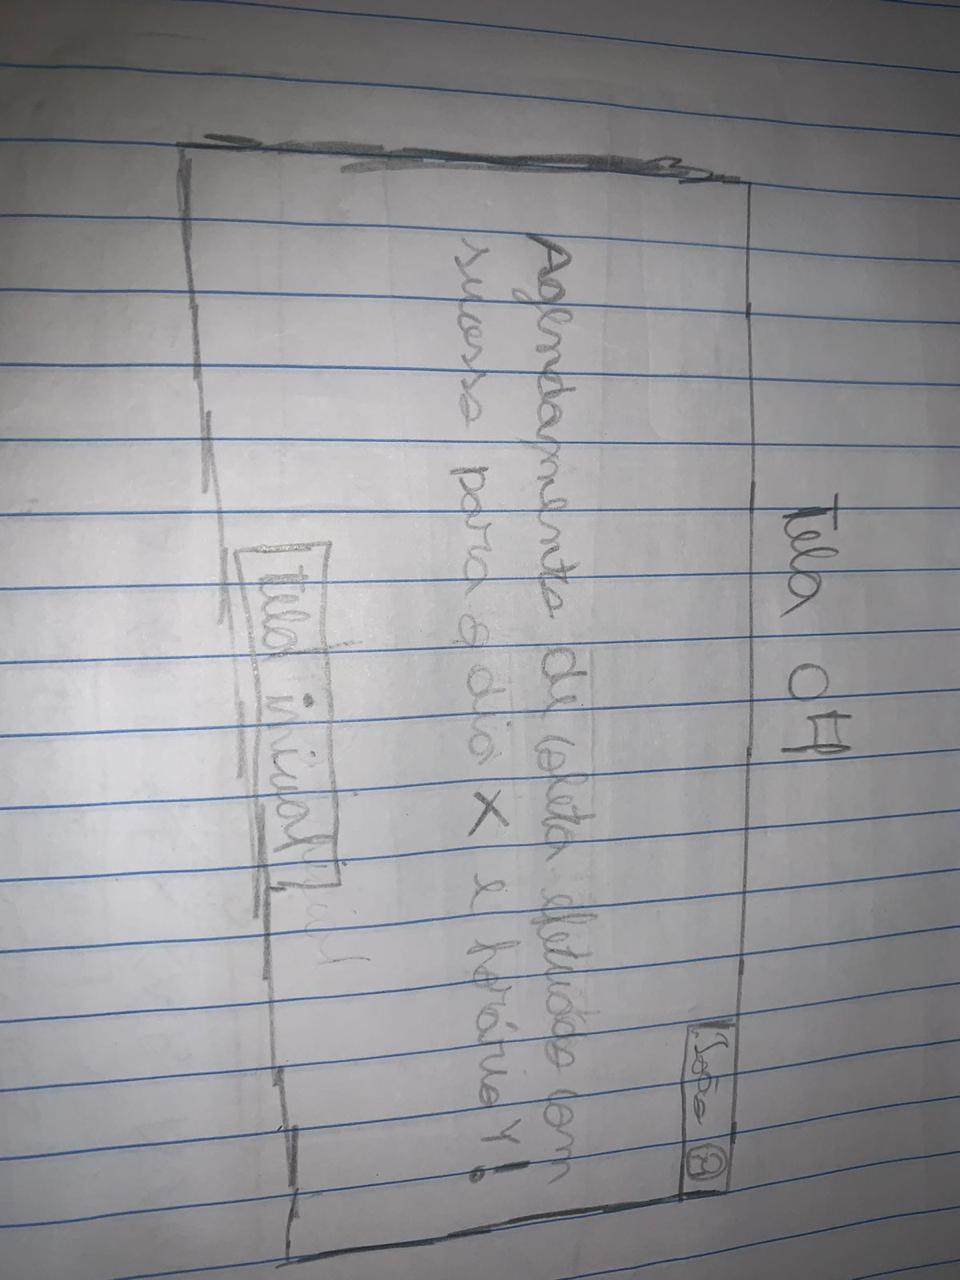 Tela 04
João
Agendamento de coleta efetuado com
sucesso para o dia X e horário Y!
Tela inicial